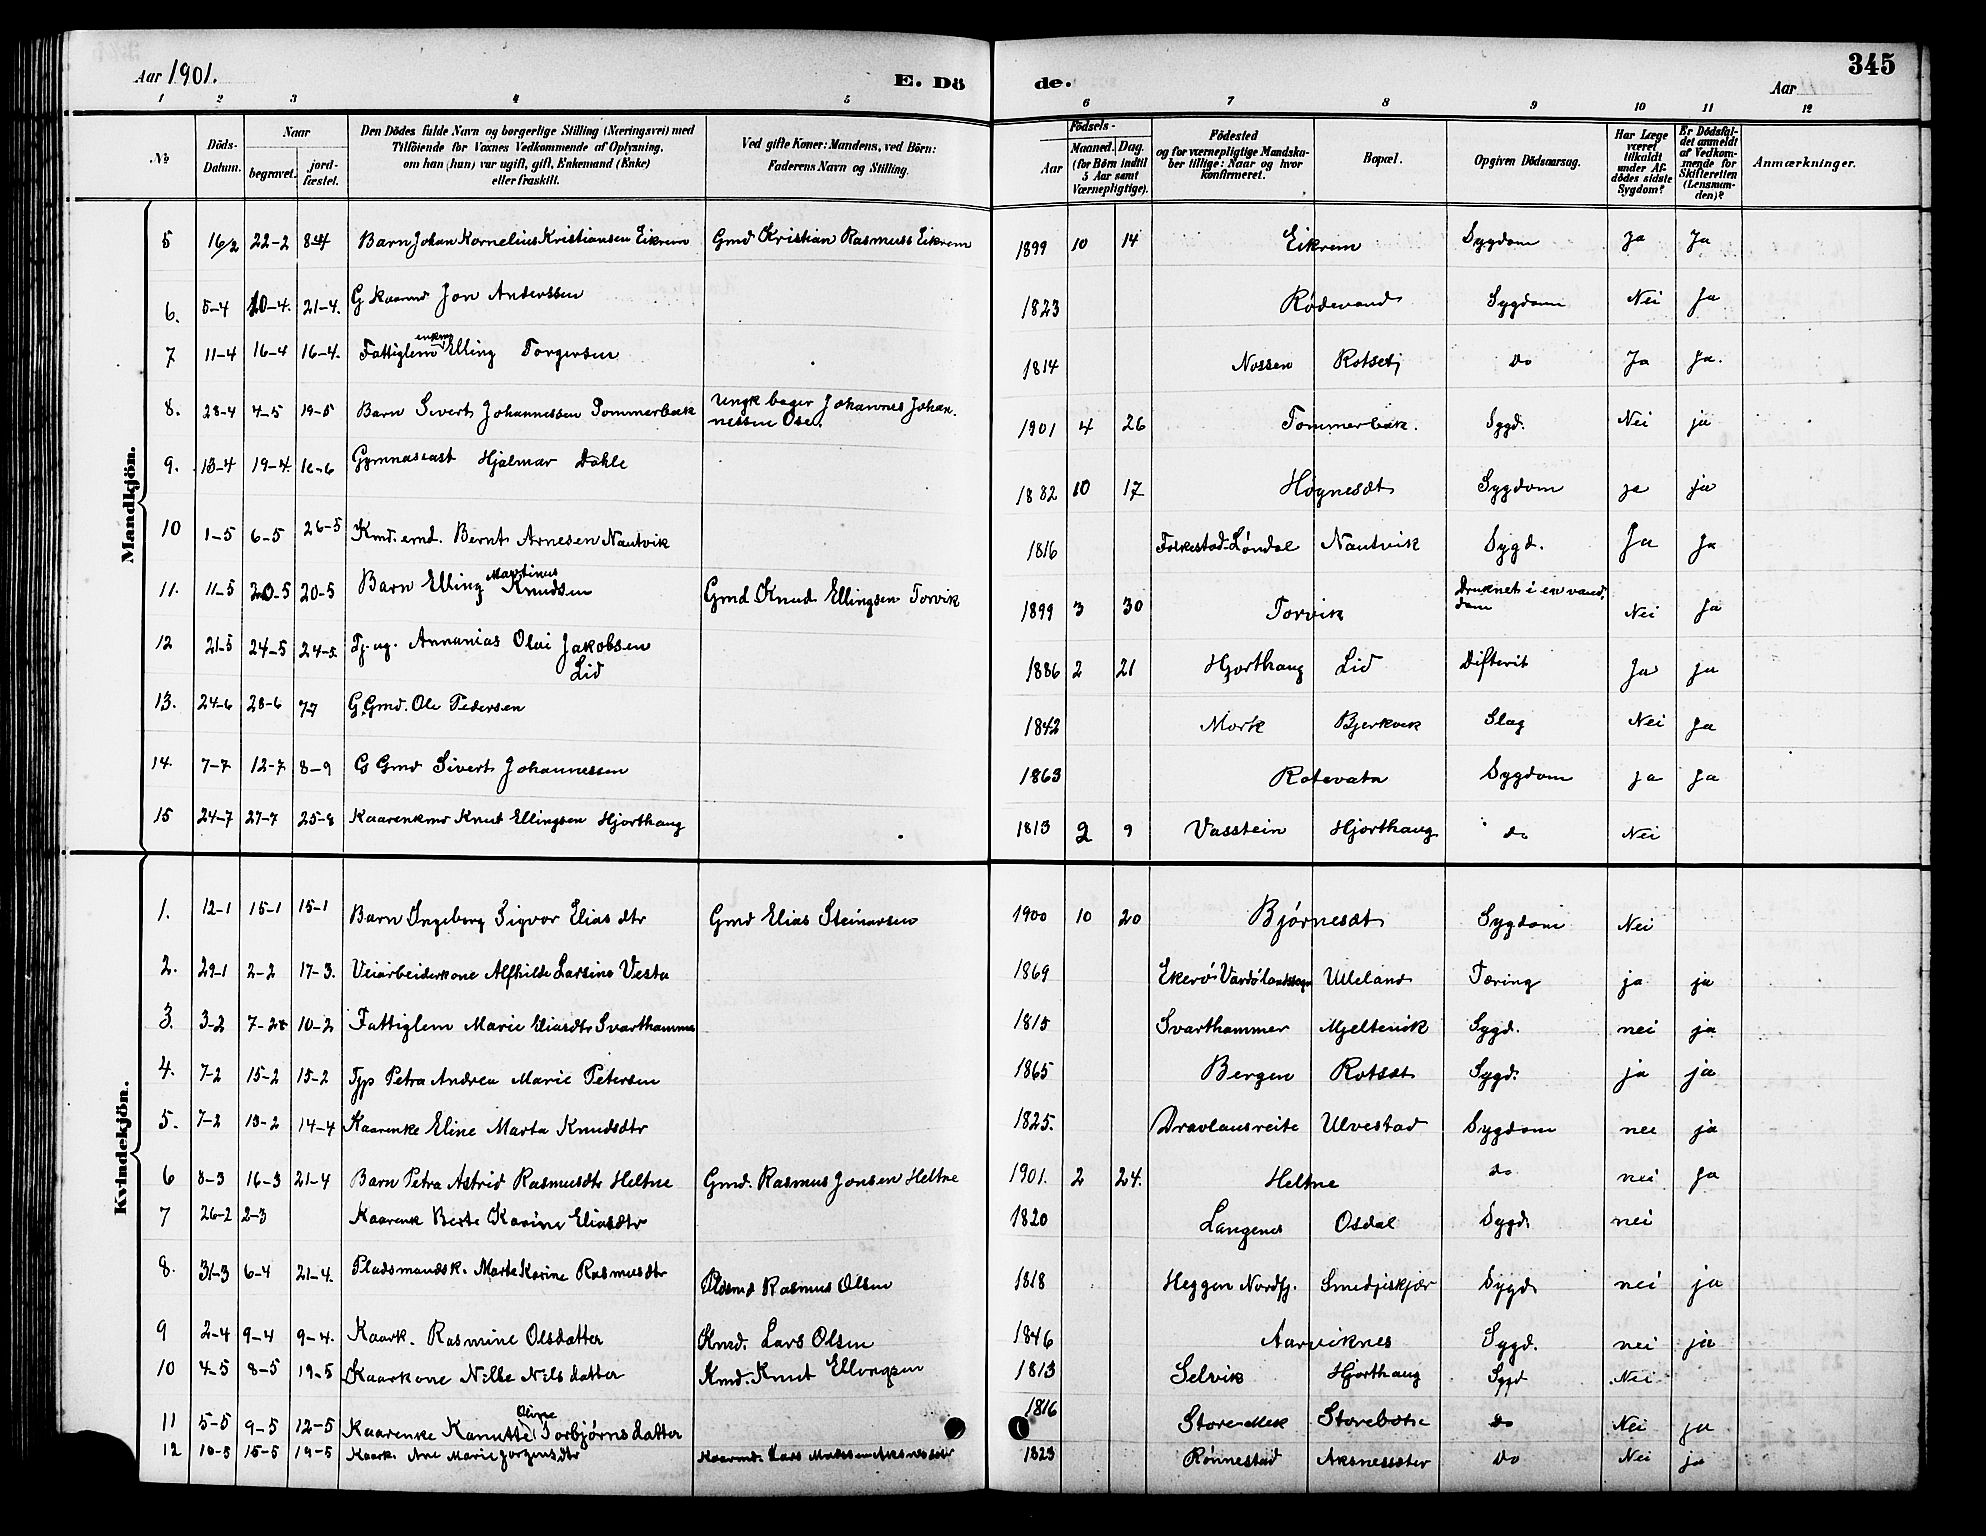 345
Aar 1901. E. Dö de. Aar
1 2 3 4 5 6 7 8 9 10 11 12
No Döds-Datum. Naar begravet. jord-fæstet. Den Dödes fulde Navn og borgerlige Stilling (Næringsvei) med Tilföiende for Voxnes Vedkommende af Oplysning, om han (hun) var ugift, gift, Enkemand (Enke) eller fraskilt. Ved gifte Koner: Mandens, ved Börn: Faderens Navn og Stilling. Födsels- Aar Maaned. Dag. (for Börn indtil 5 Aar samt Værnepligtige). Födested og for værnepligtige Mandskaber tillige: Naar og hvor konfirmeret. Bopæl. Opgiven Dödsaarsag. Har Læge været tilkaldt under Afdödes sidste Sygdom? Er Dödsfaldet anmeldt af Vedkommende for Skifteretten (Lensmanden)? Anmærkninger.
Mandkjön.
5 16/2 22-2 8-4 Barn Johan Kornelius Kristiansen Eikrem Gmd Kristian Rasmuss Eikrem 1899 10 14 Eikrem Sygdom ja Ja
6. 5-4 10-4. 21-4. G Kaarmd Jon Anderssen 1823 Rødevand Sygdom Nei Ja
7 11-4 16-4 16-4. Fattiglem enkmd Elling Torgersen 1814 Nossen Rotset do Ja Ja.
8. 28-4 4-5 19-5 Barn Sivert Johannessen Tommerbak Ungk bager Johannes Johannessen Ose. 1901 4 26 Tommerbak. Sygd. Nei ja
9. 13-4 19-4. 16-6 Gymnasiast Hjalmar Dahle 1882 10 17 Høgnesæt Sygdom ja ja
10 1-5 6-5 26-5 Kmd. emd. Bernt Arnesen Nautvik 1816 Folkestad-Løndal Nautvik Sygd. Ja Ja
11. 11-5 20-5 20-5 Barn Elling Martinus Knudsen Gmd Knud Ellingsen Torvik 1899 3 30 Torvik Druknet i en vanddam Nei Ja
12 21-5 24-5 24-5. Tj. ug. Annanias Olai Jakobsen Lid 1886 2 21 Hjorthaug Lid Difterit Ja ja
13. 24-6 28-6 7-7 G. Gmd. Ole Pedersen 1842 Mork Bjerkvik Slag Nei Ja
14 7-7 12-7 8-9 G Gmd Sivert Johannessen 1863 Rotevatn Sygdom ja Ja
15 24-7 27-7 25-8 Kaarenkmd Knut Ellingsen Hjorthaug 1813 2 9 Vasstein Hjorthaug do Nei
Kvindekjön.
1. 12-1 15-1 15-1 Barn Ingeborg Sigvor Elias dtr Gmd Elias Steinarsen 1900 10 20 Bjørnesæt Sygdom Nei
2. 29-1 2-2 17-3. Veiarbeiderkone Alfhilde Larsine Vesta 1869 Ekerø i Vardølandssogn Ulleland Tæring ja ja
3. 3-2 7-2 10-2 Fattiglem Marie Eliasdtr Svarthammer 1815 Svarthammer Mjeltevik Sygd. nei ja
4. 7-2 15-2 15-2 Tjp Petra Andrea Marie Petersen 1865 Bergen Rotsæt Sygd. ja ja
5. 7-2 13-2 14-4 Kaarenke Eline Marta Knudsdtr 1825. Dravlausreite Ulvestad Sygdom nei ja
6 8-3 16-3 21-4 Barn Petra Astrid Rasmusdtr Heltne Gmd. Rasmus Jonsen Heltne 1901. 2 24. Heltne do nei Ja
7 26-2 2-3 Kaarenk Berte Karine Eliasdtr 1820 Langenes Osdal Sygd. nei
8. 31-3 6-4 21-4. Pladsmandsk. Marte Karine Rasmusdtr Pldsmd Rasmus Olsen 1818 Heggen Nordfj. Smedjiskjær Sygd. nei ja
9 2-4 9-4 9-4. Kaark. Rasmine Olsdatter Kmd. Lars Olsen 1846 Aarviknes Sygd. nei ja
10 4-5 8-5 19-5 Kaarkone Nille Nils datter Kmd. Knut Ellingsen 1813 Selvik Hjorthaug Sygd Nei
11 5-5 9-5 12-5 Kaarenke Kanutte Oline Torbjørns datter 1816 Store-Mek Storebotn do Nei ja
12 10-5 15-5 19-5 Kaark. Ane Marie Jørgensdtr Kaarmd. Lars 1823 Rønnestad Aksnessæter do Nei ja